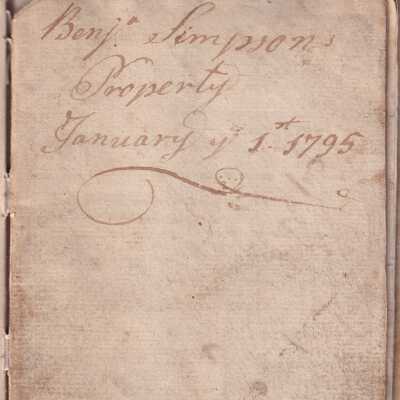 Benjᵃ Simpsons
Property
January yᵉ 1.ˢᵗ 1795